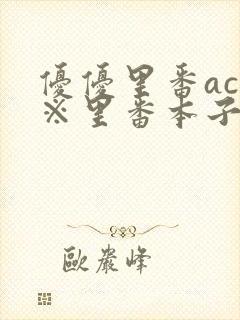 優優里番ac
※里番本子
歐巖峰